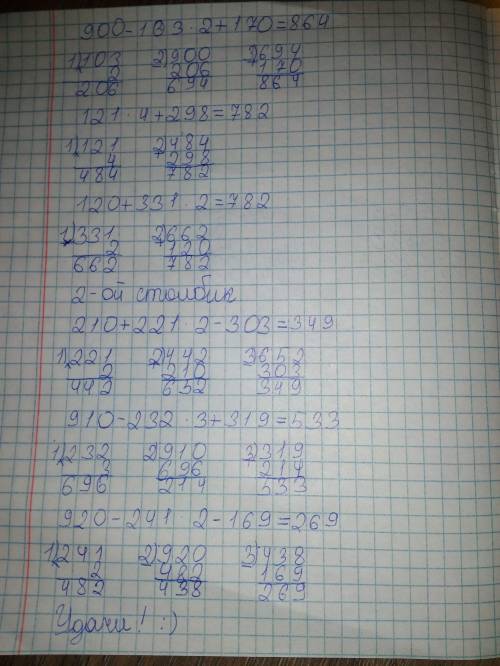 900-103·2+170=864
1) 103 2) 900 3) 694
2 206 170
206 694 864
121·4+298=782
1) 121 2) 484
4 298
484 782
120+331·2=782
1) 331 2) 662
2 120
662 782
2-ой столбик
210+221·2-303=349
1) 221 2) 442 3) 652
2 210 303
442 652 349
910-232·3+319=533
1) 232 2) 910 3) 319
3 696 214
696 214 533
920-241 2-169=269
1) 241 2) 920 3) 438
2 482 169
482 438 269
Удачи! :)